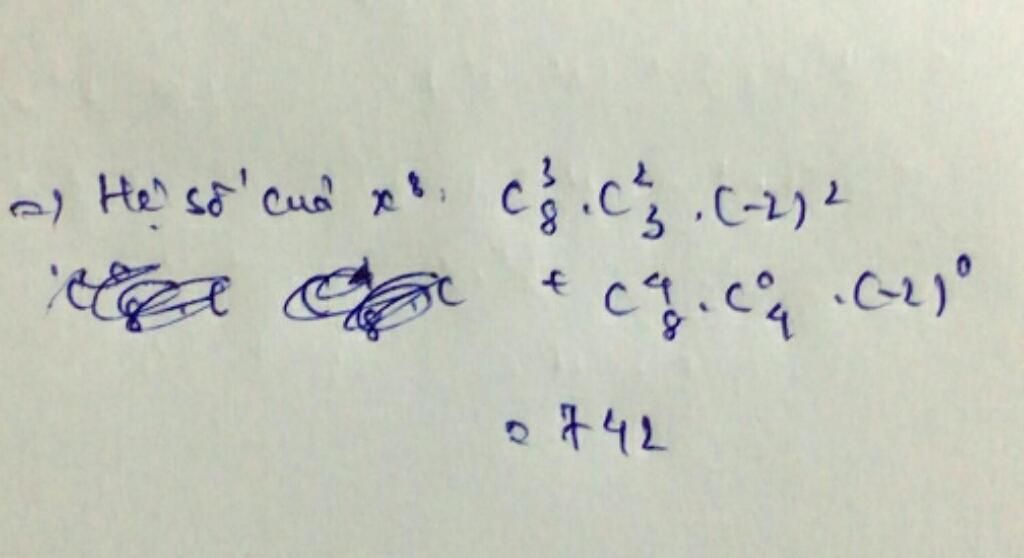 =) Hệ số của x⁸: C₈³.C₃².(-2)²
+ C₈⁴.C₄⁰.(-2)⁰
= 742